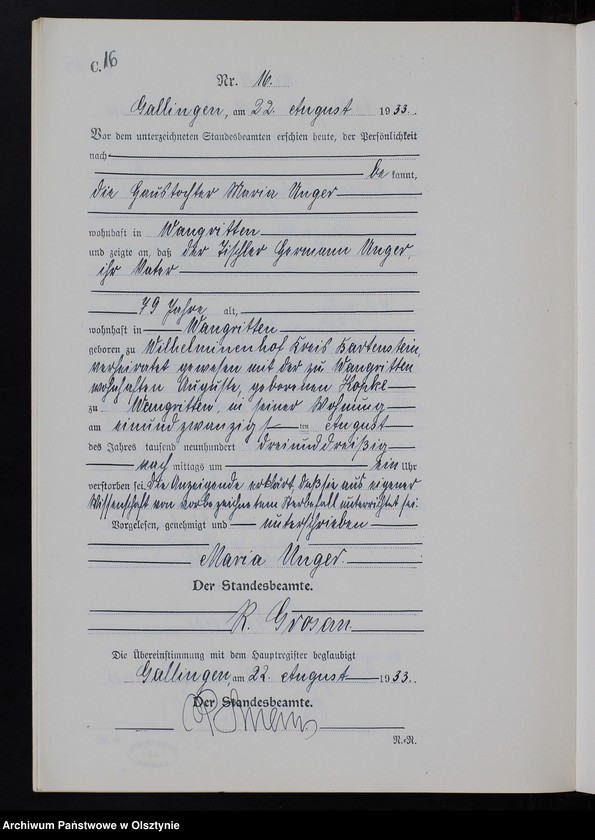 C. 16
Nr. 16.
Gallingen, am 22. August 1933.
Vor dem unterzeichneten Standesbeamten erschien heute, der Persönlichkeit
nach
be kannt,
die Haustochter Maria Unger
wohnhaft in Wangritten
und zeigte an, daß der Tischler Hermann Unger,
ihr Vater
79 Jahre alt,
wohnhaft in Wangritten
geboren zu Wilhelminenhof Kreis Bartenstein,
verheiratet gewesen mit der zu Wangritten
wohnhaften Auguste, geborenen
zu Wangritten, in seiner Wohnung
am einundzwanzigsten August
des Jahres tausend neunhundert dreiunddreißig
nach mittags um ein Uhr
verstorben sei. Die Anzeigende erklärt daß sie aus eigener
Wissenschaft von vorbezeichnetem Sterbefall unterrichtet sei.
Vorgelesen, genehmigt und unterschrieben
Maria Unger.
Der Standesbeamte.
R. Grosan
Die Übereinstimmung mit dem Hauptregister beglaubigt
Gallingen, am 22. August 1933.
Der Standesbeamte.
N.-R.
Archiwum Państwowe w Olsztynie